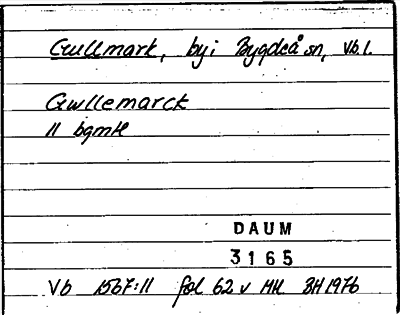 Gullmark, by i Bygdeå sn, Vb.l.
Gwllemarck
11 bgmH
DAUM
3165
Vb 1567:11 fol 62 v MH BH 1976